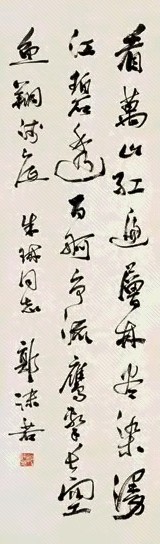 看萬山紅遍層林尽染漫
江碧透百舸爭流鷹擊長空
魚翔淺底 朱琳同志 郭沫若